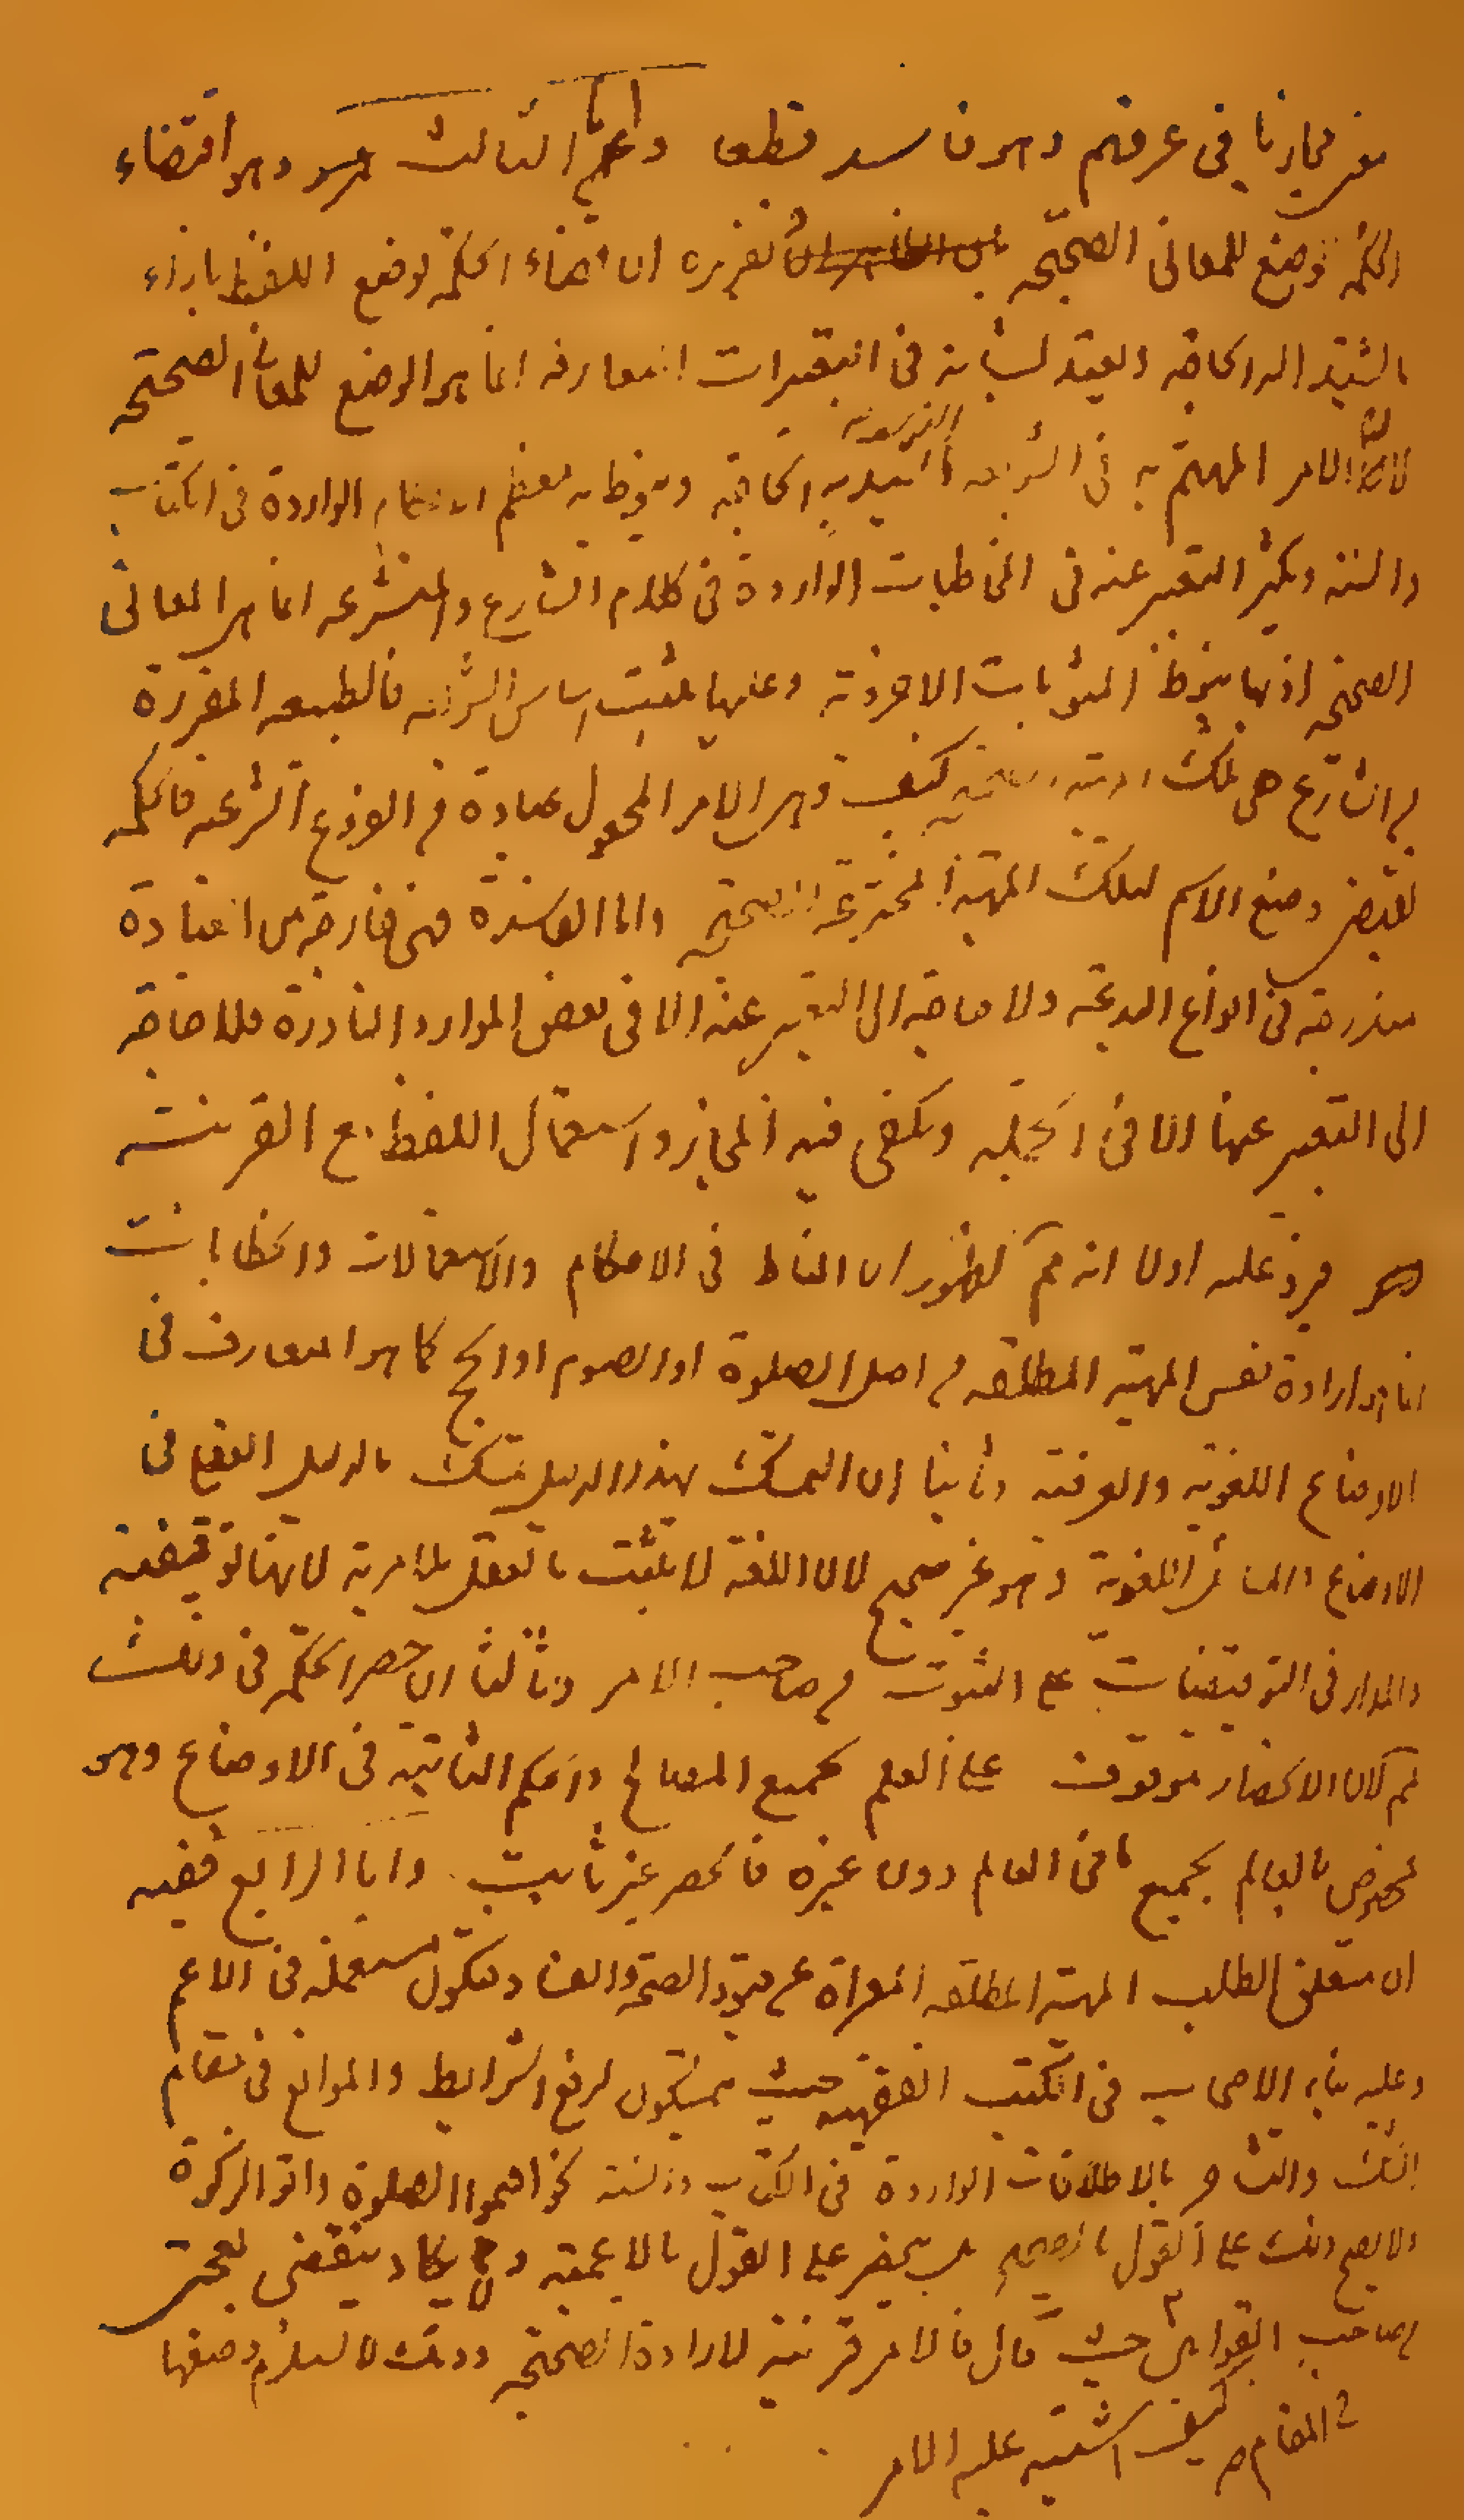 مجازنا في عرفهم وهو فاسد قطعا واما الثالث وهو اقتضاء
الحكمة لوضع للمعاني الصحيحة تقريره ان اقتضاء الحكمة لوضع اللفظ بازاء
ما اشتد اليه الحاجة ويعتد لشانه في التعبيرات المتعارفة انما هو الوضع للمعاني الصحيحة
لان الامر المهتم به في الشريعة الشديد به الحاجة ومنوط به معظم الاحكام الواردة في الكتاب
والسنة ويكثر التعبير عنه في المخاطبات الواردة في كلام الشارع والمتشرعة انما هو المعاني
الصحيحة اذ بها ينوط المثوبات الاخروية وعليها يثبت اساس الشريعة فالطبيعة المقررة
من الشارع هي تلك كيف وهو الامر المجعول عبادة في الفروع الشرعية فالحكمة
تقتضي وضع الاسم لتلك المهية المخترعة الصحيحة واما الفاسدة فهي خارجة من العبادة
مندرجة في انواع البدعة ولا حاجة الى التعبير عنه الا في بعض الموارد النادرة فلا حاجة
الى التعبير عنها الا في الجملة ويكفي فيه المجاز واستعمال اللفظ مع القرينة
فيرد عليه اولا انه مم لظهور ان المناط في الاحكام والاستعمالات والخطابات
انما هو ارادة نفس المهية المطلقة من اصل الصلوة او الصوم او الحج كما هو المتعارف في
الاوضاع اللغوية والعرفية وثانيا ان التمسك بهذا الدليل تمسك بالدليل العقلي في
الاوضاع والمسائل اللغوية وهو غير صحيح لان اللغة لا يثبت بالعقل بلا مرية لانها توقيفية
والمدار في التوقيفيات على الثبوت من صاحب الامر وثالثا ان حصر الحكمة في ذلك
مم لان الانحصار موقوف على العلم بجميع المصالح والحكم الثابتة في الاوضاع وهو
مخصوص بالعالم بجميع ما في العالم دون غيره فالحصر غير ثابت واما الرابع ففيه
ان متعلق الطلب المهية المطلقة المعراة عن قيود الصحة والفساد فيكون مستعملة في الاعم
وعليه بناء الاصحاب في الكتب الفقهية حيث يتمسكون لرفع الشرايط والموانع في مقام
الشك والتشاجر بالاطلاقات الواردة في الكتاب والسنة نحو اقيموا الصلوة واتوا الزكوة
ولا يصح ذلك على القول بالصحيح بل ينحصر على القول بالاعمية ولا يكاد ينقضي تعجبي
من صاحب القوانين حيث قال فالامر قرينة لارادة الصحيحة وذلك لا يستلزم وضعها
في المقام كيف اشتبه عليه الامر